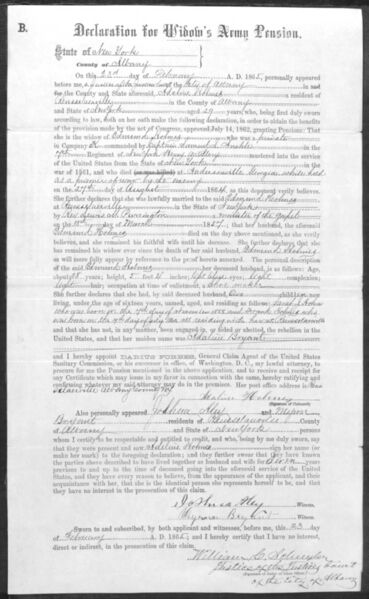 B. Declaration for Widow's Army Pension.
State of New York
County of Albany
On this 23d day of February A. D. 1865, personally appeared
before me, a of the City of Albany in and
for the County and State Adaline Holmes a resident of
in the County of Albany
and State of New York 29 years, who, being first duly sworn
according to law, doth on oath make the following declaration, in order to obtain the benefits
of the provision made by the act of Congress, approved July 14, 1862, granting Pensions: That
she is the widow of Edmund Holmes who was a private
in Company K commanded by Captain Samuel in the
7th Regiment of New York Heavy Artillery mustered into the service
of the United States from the State of New York in the
war of 1861, and who died at Andersonville Georgia while held
as a prisoner of war by the enemy
on the 27th day of August 1864, as this deponent verily believes.
She further declares that she was lawfully married to the said Edmund Holmes
at in the State of New York
by Rev a minister of the gospel
on the day of March 1857; that her husband, the aforesaid
Edmund Holmes died on the day above mentioned, as she verily
believes, and she remained his faithful wife until his decease. She further declares, that she
has remained his widow ever since the death of her said husband, Edmund Holmes
as will more fully appear by reference to the proof hereto annexed. The personal description
of the said Edmund Holmes, her deceased husband, is as follows: Age,
about years; height, 5 feet inches; eyes, light complexion;
light hair; occupation at time of enlistment, Shoe maker
She further declares that she had, by said deceased husband, children now
living, under the age of sixteen years, named, aged, and residing as follows:
who was born on the day of and Frank Holmes who
was born on the day of all residing with
and that she has not, in any manner, been engaged in, or aided or abetted, the rebellion in the
United States, and that her maiden name was Adaline Bryant
and I hereby appoint DARIUS FORBES, General Claim Agent of the United States
Sanitary Commission, or his successor in office, of Washington, D. C., my lawful attorney, to
procure for me the Pension mentioned in the above application, and to receive and receipt for
any Certificate which may issue in my favor in connection with the same, hereby ratifying and
confirming whatever my said attorney may do in the premises. Her post office address is
Albany County N.Y.
Adaline Holmes
(Signature of Claimant)
Also personally appeared Joshua and Myron
Bryant residents of
of Albany and State of New York persons
whom I certify to be respectable and entitled to credit, and who, being by me duly sworn, say
that they were present and saw Adaline Holmes sign her name (or
make her mark) to the foregoing declaration; and they further swear that they have known the
parties above described to have lived together as husband and wife for seven years
previous to and up to the time of deceased going into the aforesaid service of the United States,
and that they have every reason to believe, from the appearance of the applicant, and their
acquaintance with her, that she is the identical person she represents herself to be, and that
they have no interest in the prosecution of this claim.
Joshua Witness.
Myron Bryant Witness.
Sworn to and subscribed, by both applicant and witnesses, before me, this 23 day
of February A. D. 1865; and I hereby certify that I have no interest,
direct or indirect, in the prosecution of this claim.
William
Justice of the Justices Court
(Signature of Judge or Clerk of Court)
of the City of Albany